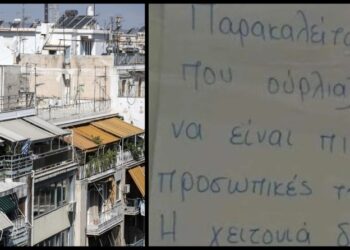 Παρακαλείτα
που ούρλια
να είναι πι
προσωπικές τ
Η χειτονιά δ